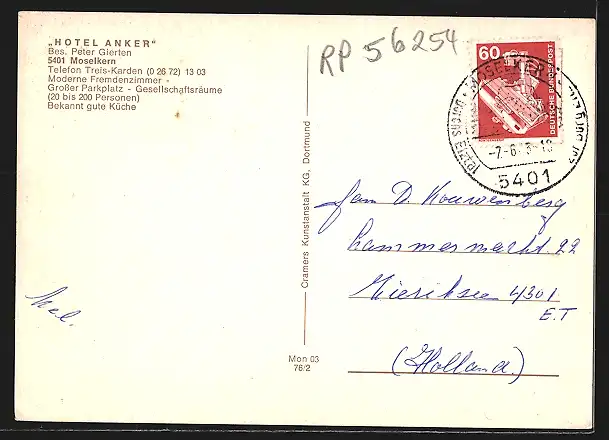 „HOTEL ANKER"
Bes. Peter Gierten
5401 Moselkern
Telefon Treis-Karden (0 26 72) 13 03
Moderne Fremdenzimmer -
Großer Parkplatz - Gesellschaftsräume
(20 bis 200 Personen)
Bekannt gute Küche
RP 56254
60
DEUTSCHE BUNDESPOST
MOSELKERN
5401
Cramers Kunstanstalt KG, Dortmund
Fam D. Kouwenberg
hammermarkt 22
Zieriksee 4301
E.T
(Holland.)
Mon 03
76/2